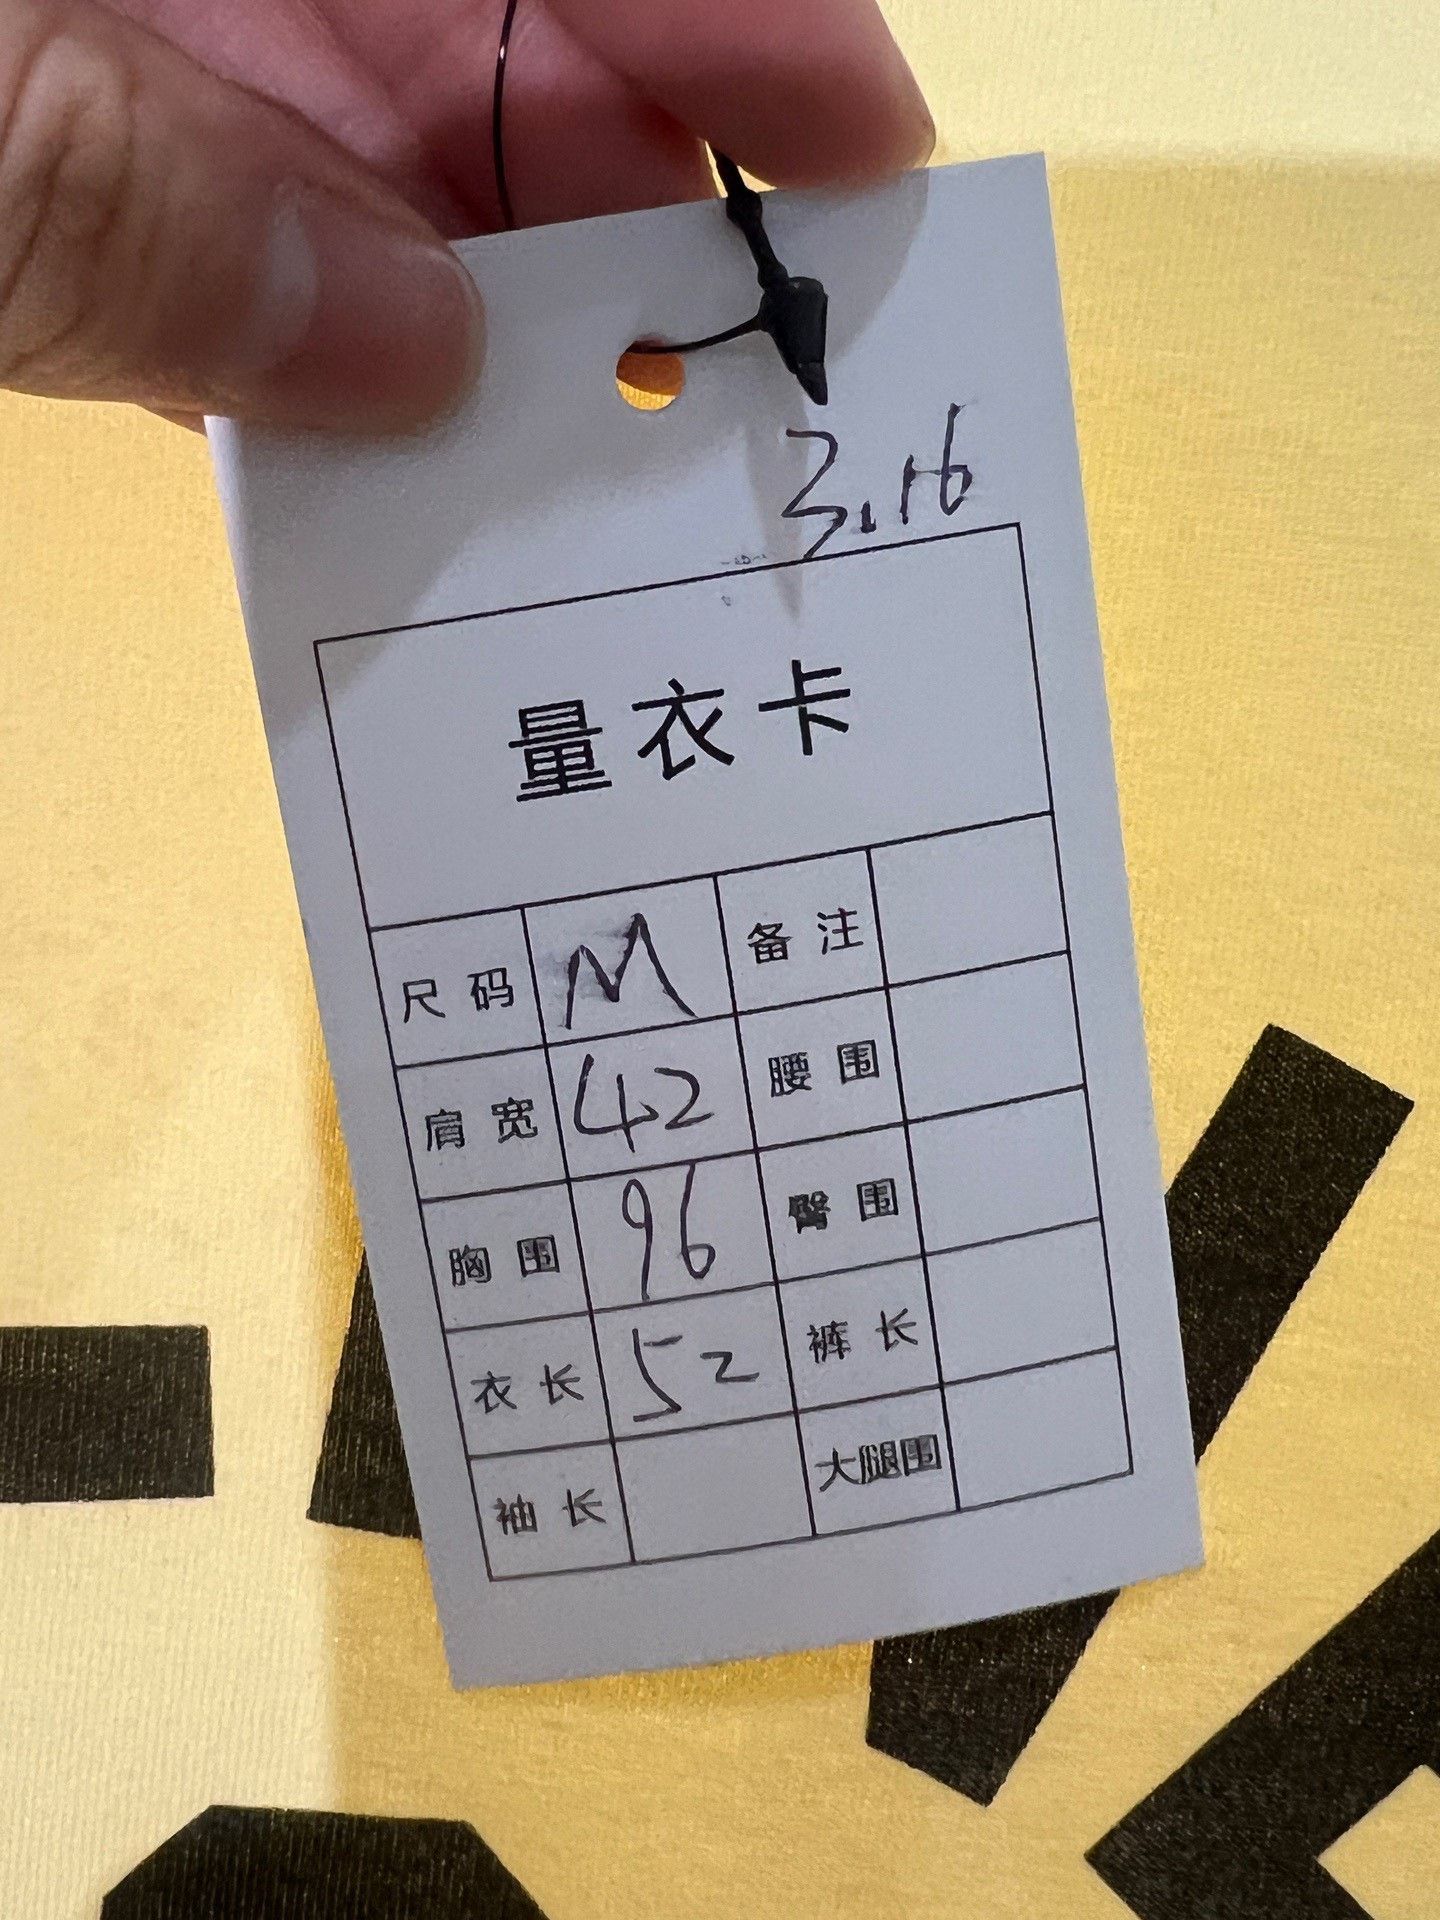 3.16
量衣卡
尺码 M 备注
肩宽 42 腰围
胸围 96 臀围
衣长 52 裤长
袖长 大腿围